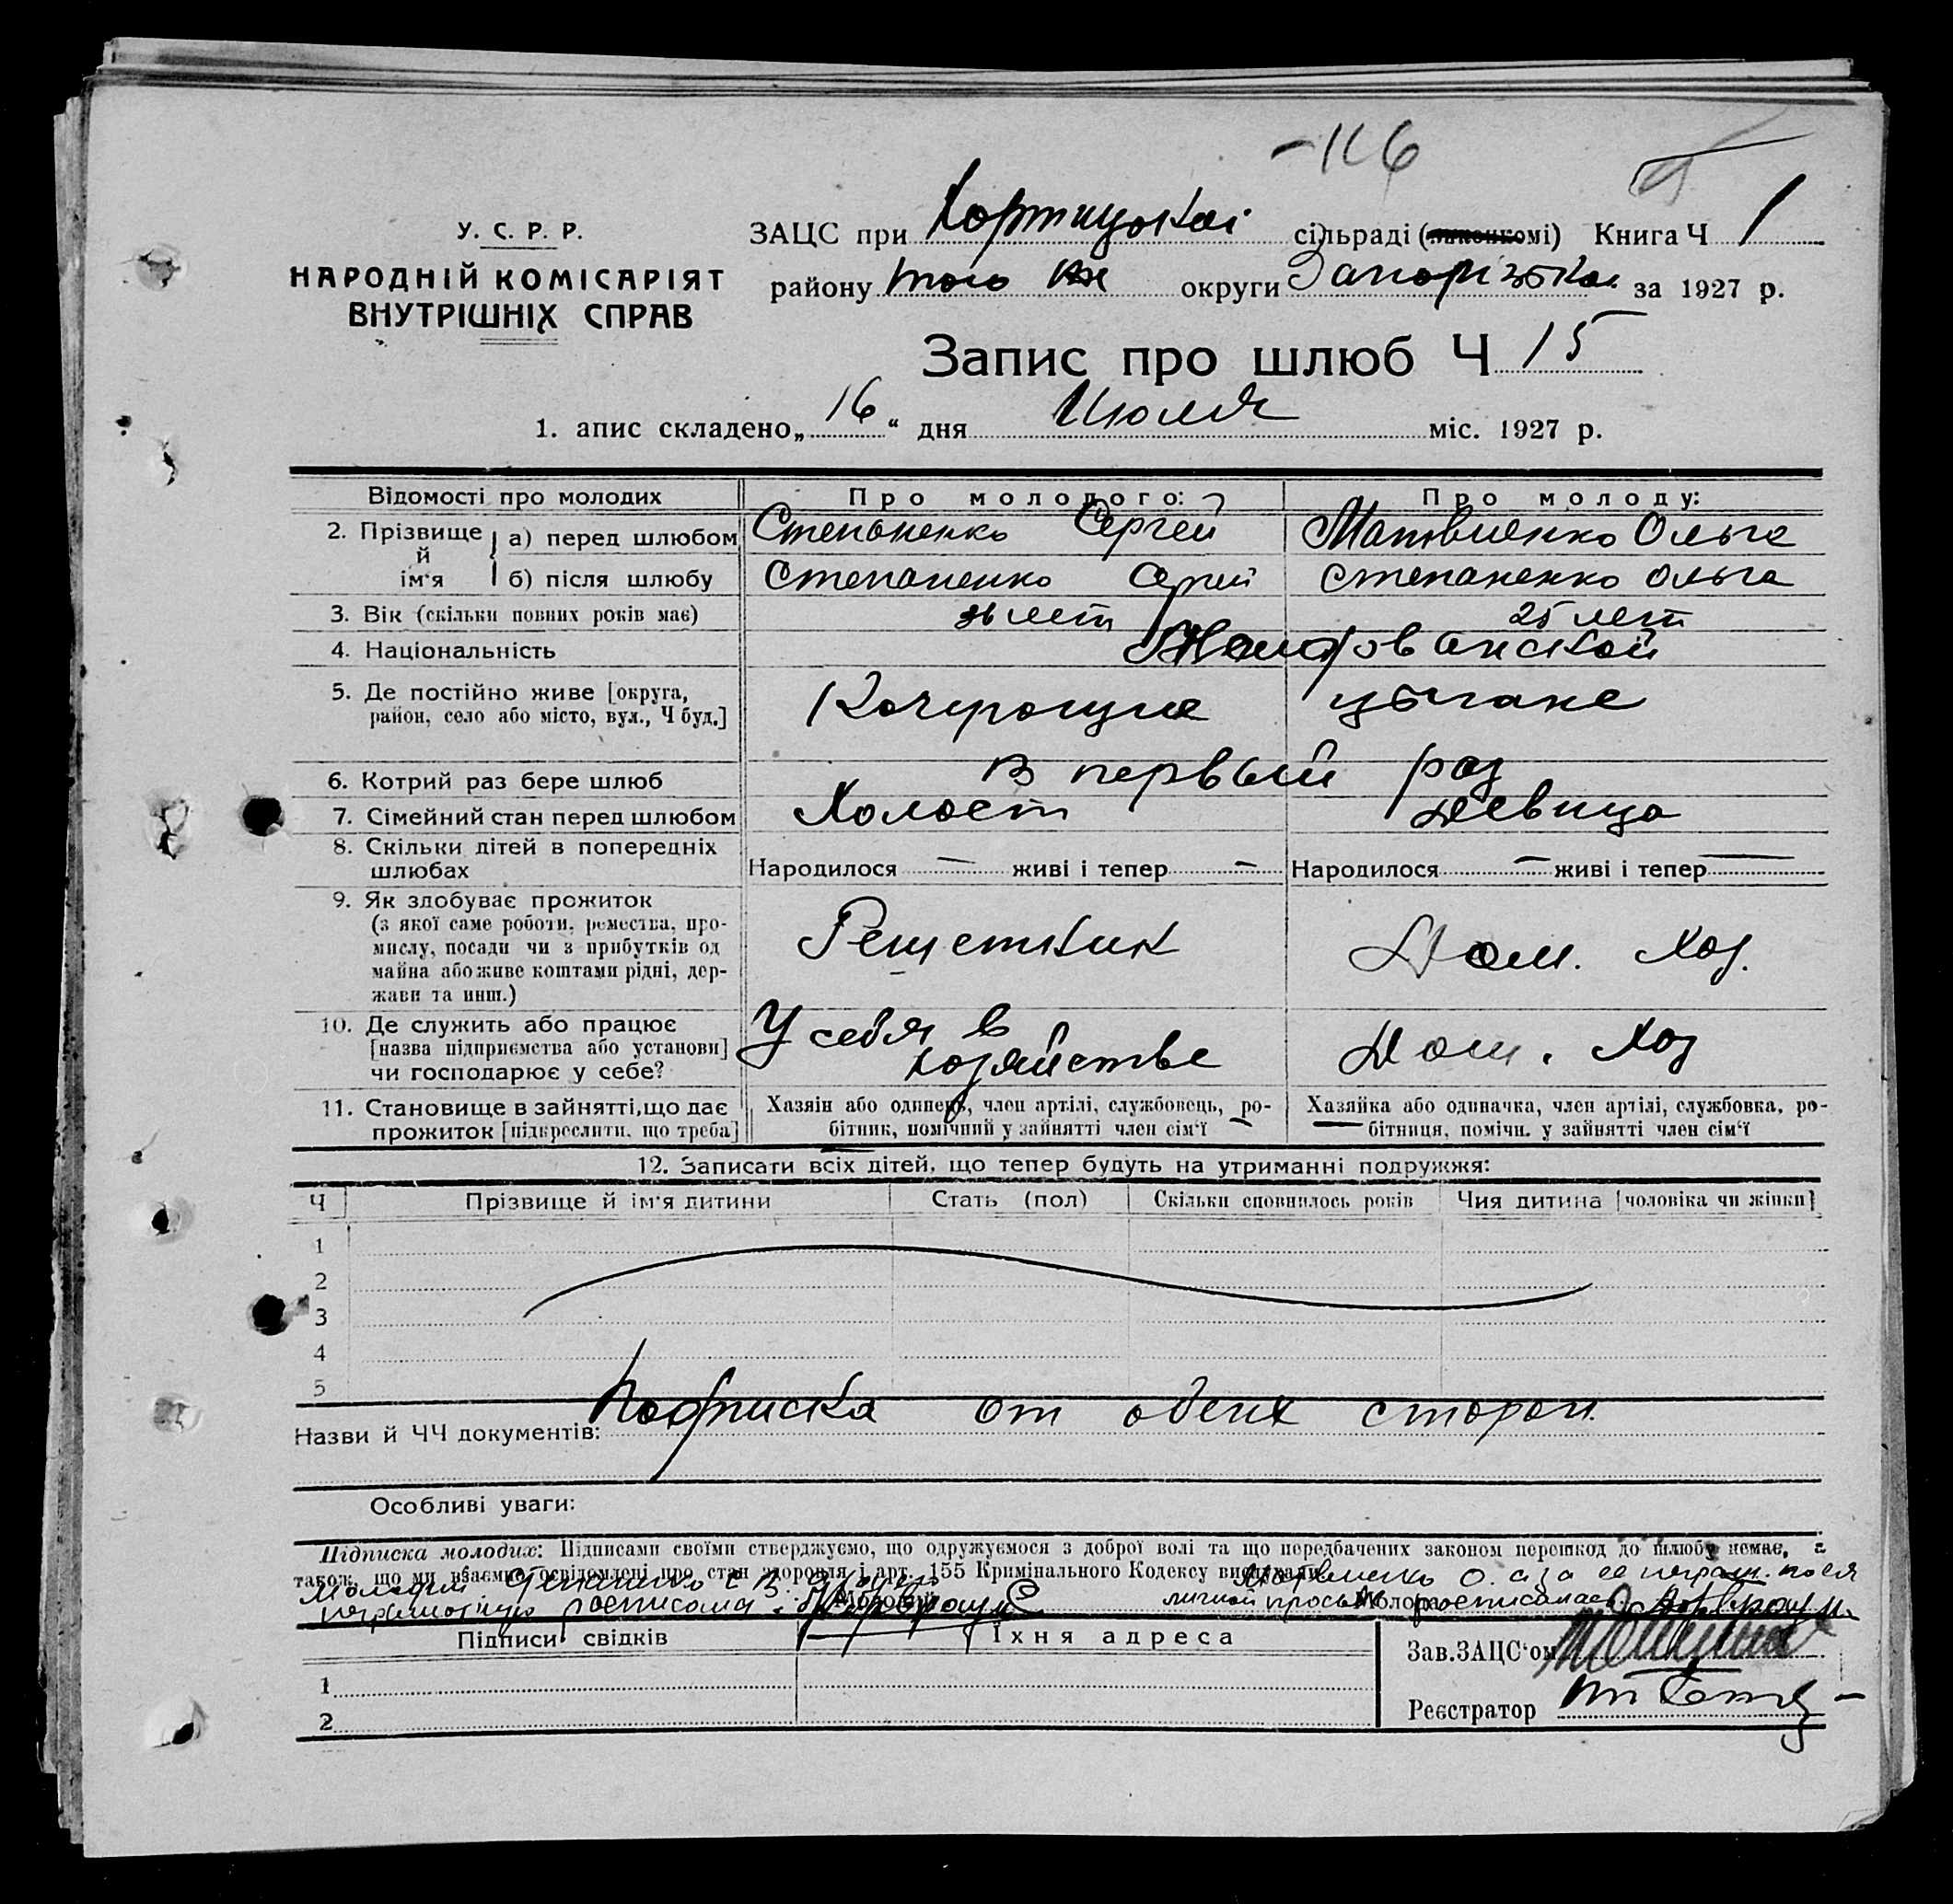 -116
У. С. Р. Р.
НАРОДНІЙ КОМІСАРІЯТ
ВНУТРІШНІХ СПРАВ
ЗАЦС при Хортицькой сільраді ( мі) Книга Ч 1
району того же округи Запорізькой за 1927 р.
Запис про шлюб Ч 15
1. апис складено „ 16 “ дня Июля міс. 1927 р.
Відомості про молодих Про молодого: Про молоду:
2. Прізвище й ім'я а) перед шлюбом Степаненко Сергей Матвиенко Ольга
б) після шлюбу Степаненко Сергей Степаненко Ольга
3. Вік (скільки повних років має) лет 25 лет
4. Національність
5. Де постійно живе [округа, район, село або місто, вул., Ч буд.] Кочующие цыгане
6. Котрий раз бере шлюб в первый раз
7. Сімейний стан перед шлюбом Холост девица
8. Скільки дітей в попередніх шлюбах Народилося — живі і тепер — Народилося — живі і тепер —
9. Як здобуває прожиток
(з якої саме роботи, ремества, про-
мислу, посади чи з прибутків од
майна або живе коштами рідні, дер-
жави та инш.)
Решетник Дом. Хоз.
10. Де служить або працює
[назва підприємства або установи]
чи господарює у себе?
У себя в хозяйстве Дом. Хоз
11. Становище в зайнятті, що дає
прожиток [підкреслити, що треба]
Хазяін або одинець, член артілі, службовець, ро-
бітник, помічний у зайнятті член сім'ї
Хазяйка або одиначка, член артілі, службовка, ро-
бітниця, помічн. у зайнятті член сім'ї
12. Записати всіх дітей, що тепер будуть на утриманні подружжя:
Ч Прізвище й ім'я дитини Стать (пол) Скільки сповнилось років Чия дитина [чоловіка чи жінки]
1
2
3
4
5
Назви й ЧЧ документів: Подписка от обеих сторон.
Особливі уваги:
Підписка молодих: Підписами своїми стверджуємо, що одружуємося з доброї волі та що передбачених законом перешкод до шлюбу немає, а
також, що ми взаємно освідомлені про стан здоровля і арт. 155 Кримінального Кодексу
Матвиенко О. а за ее неграм. по ея
личной просьбе росписалась
Підписи свідків Їхня адреса
Зав. ЗАЦС'ом
1
Реєстратор
2